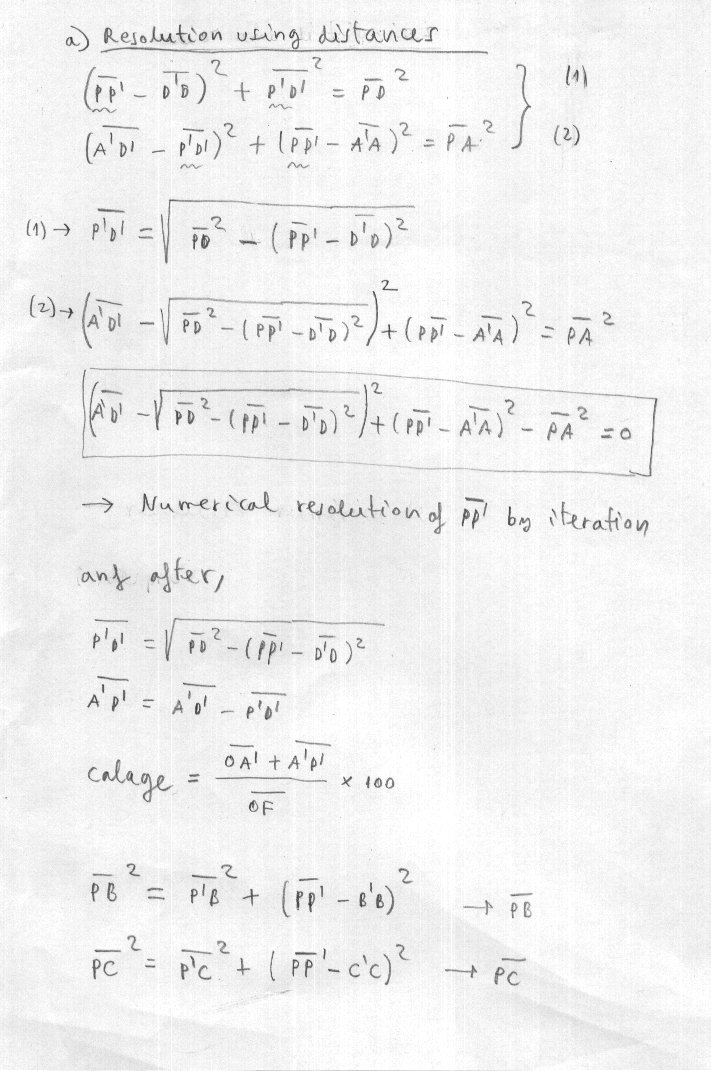 a) Resolution using distances
(P̅P̅'̅ - D̅'̅D̅)² + P̅'̅D̅'̅² = P̅D̅² (1)
(A̅'̅D̅'̅ - P̅'̅D̅'̅)² + (P̅P̅'̅ - A̅'̅A̅)² = P̅A̅² (2)
(1) → P̅'̅D̅'̅ = √(P̅D̅² - (P̅P̅'̅ - D̅'̅D̅)²)
(2) → (A̅'̅D̅'̅ - √(P̅D̅² - (P̅P̅'̅ - D̅'̅D̅)²))² + (P̅P̅'̅ - A̅'̅A̅)² = P̅A̅²
(A̅'̅D̅'̅ - √(P̅D̅² - (P̅P̅'̅ - D̅'̅D̅)²))² + (P̅P̅'̅ - A̅'̅A̅)² - P̅A̅² = 0
→ Numerical resolution of P̅P̅'̅ by iteration
and after,
P̅'̅D̅'̅ = √(P̅D̅² - (P̅P̅'̅ - D̅'̅D̅)²)
A̅'̅P̅'̅ = A̅'̅D̅'̅ - P̅'̅D̅'̅
calage = (O̅A̅'̅ + A̅'̅P̅'̅) / O̅F̅ × 100
P̅B̅² = P̅'̅B̅² + (P̅P̅'̅ - B'B)² → P̅B̅
P̅C̅² = P̅'̅C̅² + (P̅P̅'̅ - C'C)² → P̅C̅